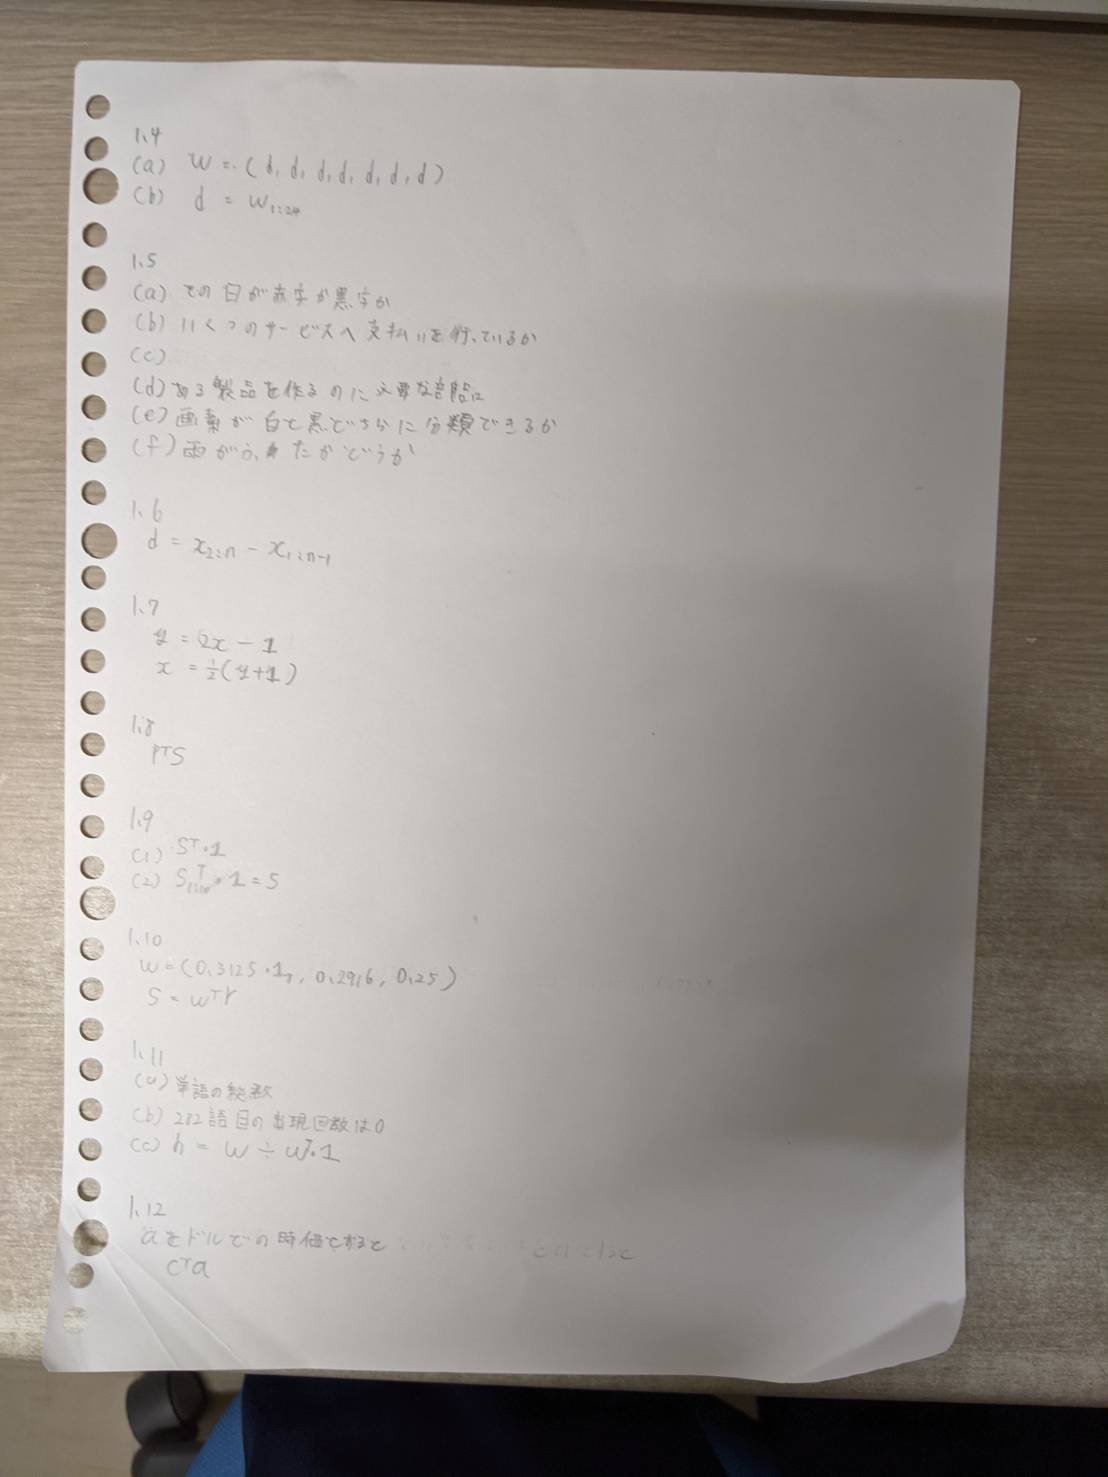 1.4
(a) w = (d, d, d, d, d, d, d)
(b) d = w₁:₂₄
1.5
(a) その日が赤字か黒字か
(b) いくつのサービスへ支払いを行っているか
(c)
(d) ある製品を作るのに必要な
(e) 画素が白と黒どちらに分類できるか
(f) 雨がふったかどうか
1.6
d = x₂:ₙ - x₁:ₙ₋₁
1.7
y = 2x - 1
x = ½(y+1)
1.8
pᵀs
1.9
(1) sᵀ·1
(2) 1 = 5
1.10
w = (0.3125·1₈, 0.2916, 0.25)
s = wᵀr
1.11
(a) 単語の総数
(b) 282語目の出現回数は0
(c) h = w ÷ wᵀ·1
1.12
aをドルでの時価とすると
cᵀa